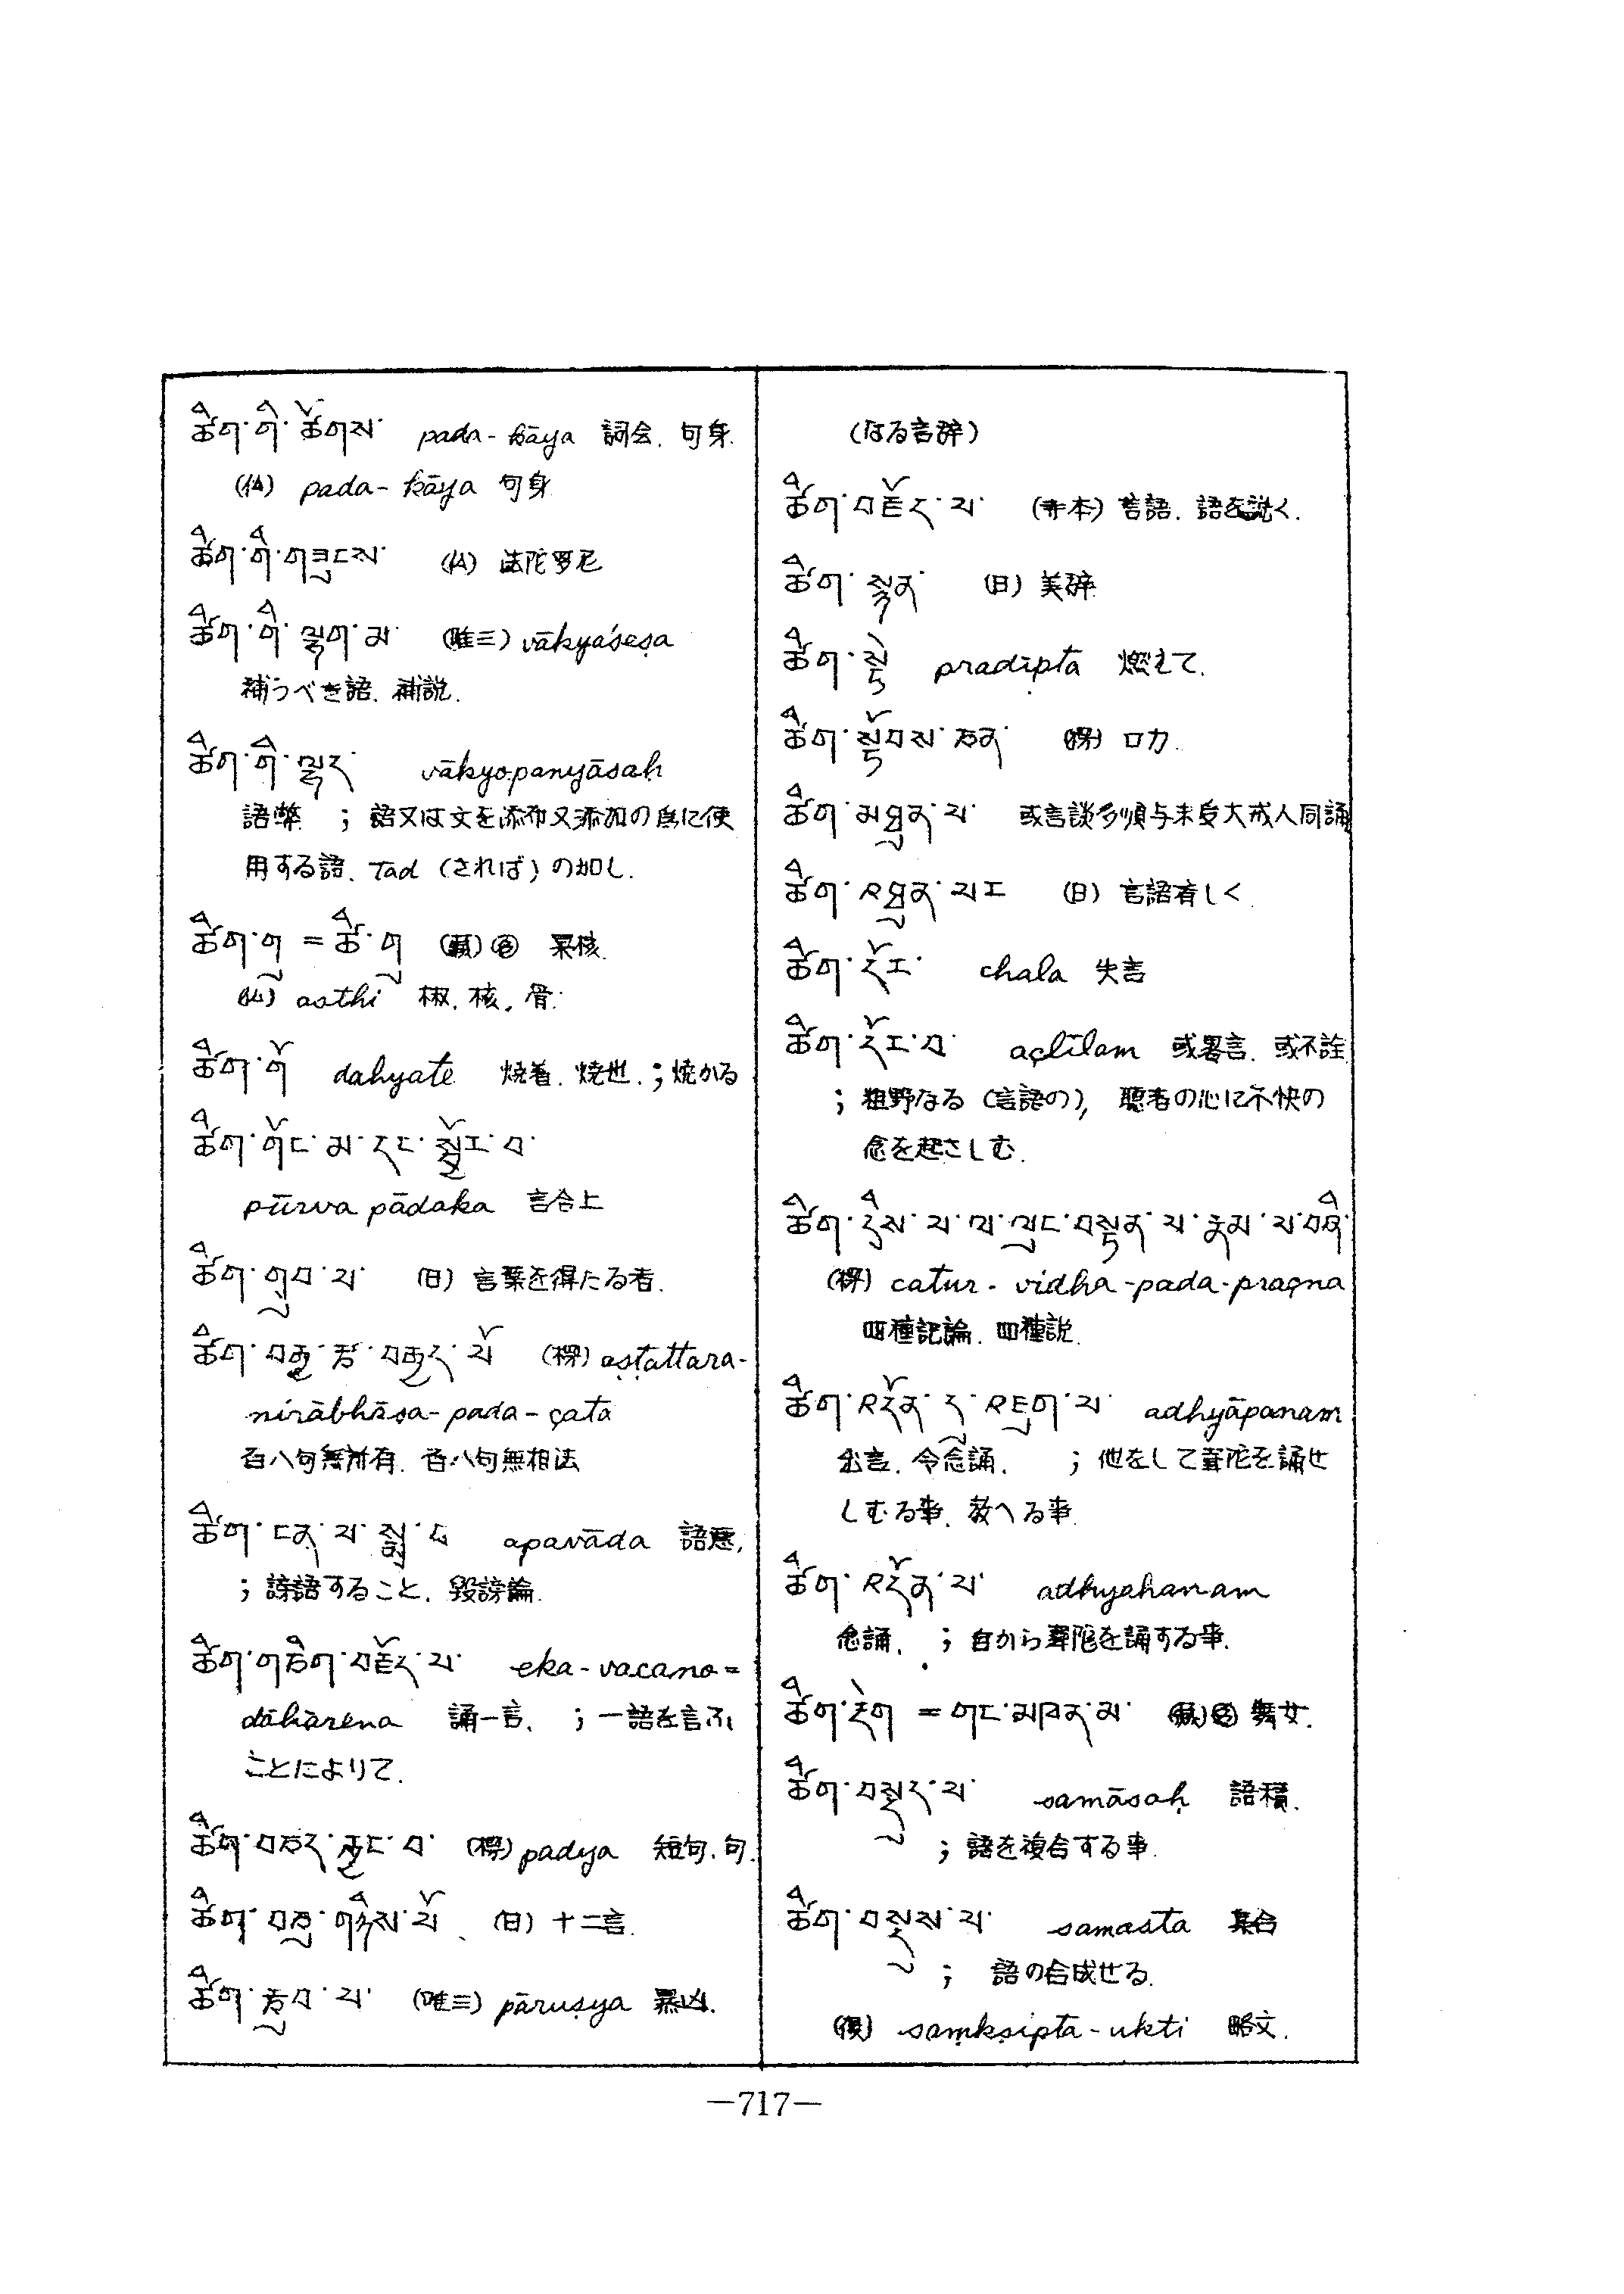 ཚིག་གི་ཚོགས་ pada-kāya 詞会. 句身.
(仏) pada-kāya 句身
ཚིག་གི་གཟུངས་ (仏) 法陀罗尼
ཚིག་གི་ལྷག་མ་ (唯三) vākyaśeṣa
補うべき語. 補説.
ཚིག་གི་ལྷད་ vākyopanyāsaḥ
語弊 ; 語又は文を添布又添加の為に使
用する語、Tad (されば) の如し.
ཚིག་གུ = ཚི་གུ (蔵) 果核.
(仏) asthi 椒. 核. 骨.
ཚིག་གོ dahyate 焼着. 焼也. ; 焼かる
ཚིག་གོང་མ་དང་སྦྱོར་བ་
pūrva pādaka 言合上
ཚིག་གྲུབ་པ་ (日) 言葉を得たる者.
ཚིག་བརྒྱ་རྩ་བརྒྱད་པོ (梵) aṣṭattara-
nirābhāsa-pada-çata
百八句無所有. 百八句無相法
ཚིག་ངན་པ་སྨྲ་ apavāda 語悪,
; 謗語すること. 毀謗論.
ཚིག་གཅིག་བརྗོད་པ་ eka-vacano=
dāhārena 誦一言. ; 一語を言ふ
ことによりて.
ཚིག་བཅད་རྐྱང་པ་ (梵) padya 短句. 句.
ཚིག་བཅུ་གཉིས་པོ (日) 十二言.
ཚིག་རྩུབ་པ་ (唯三) pāruṣya 悪凶.
(なる言辞)
ཚིག་བརྗོད་པ་ (寺本) 言語. 語を説く.
ཚིག་སྙན་ (日) 美辞
ཚིག་སྟེ pradīpta 燃えて.
ཚིག་སྟོབས་ཅན་ (梵) 口力.
ཚིག་མཐུན་པ་ 或言談多順与未受大戒人同誦
ཚིག་འཐུན་པར (日) 言語有しく.
ཚིག་དོར་ chala 失言
ཚིག་དོར་བ་ açlīlam 或畧言. 或不詮
; 粗野なる (言語の), 聴者の心に不快の
念を起さしむ.
ཚིག་དྲིས་པ་ལ་ལུང་བསྟན་པ་རྣམ་པ་བཞི་
(梵) catur-vidha-pada-praçna
四種記論. 四種説.
ཚིག་འདོན་དུ་འཇུག་པ་ adhyāpanam
出言. 令念誦. ; 他をして韋陀を誦せ
しむる事. 教へる事
ཚིག་འདོན་པ་ adhyahanam
念誦. ; 自から韋陀を誦する事.
ཚིག་རྫེག = གང་མཁན་མ་ (蔵) 舞女.
ཚིག་བསྡུད་པ་ samāsaḥ 語積.
; 語を複合する事.
ཚིག་བསྡུས་པ་ samasta 集合
; 語の合成せる.
saṃkṣipta-ukti 略文.
—717—